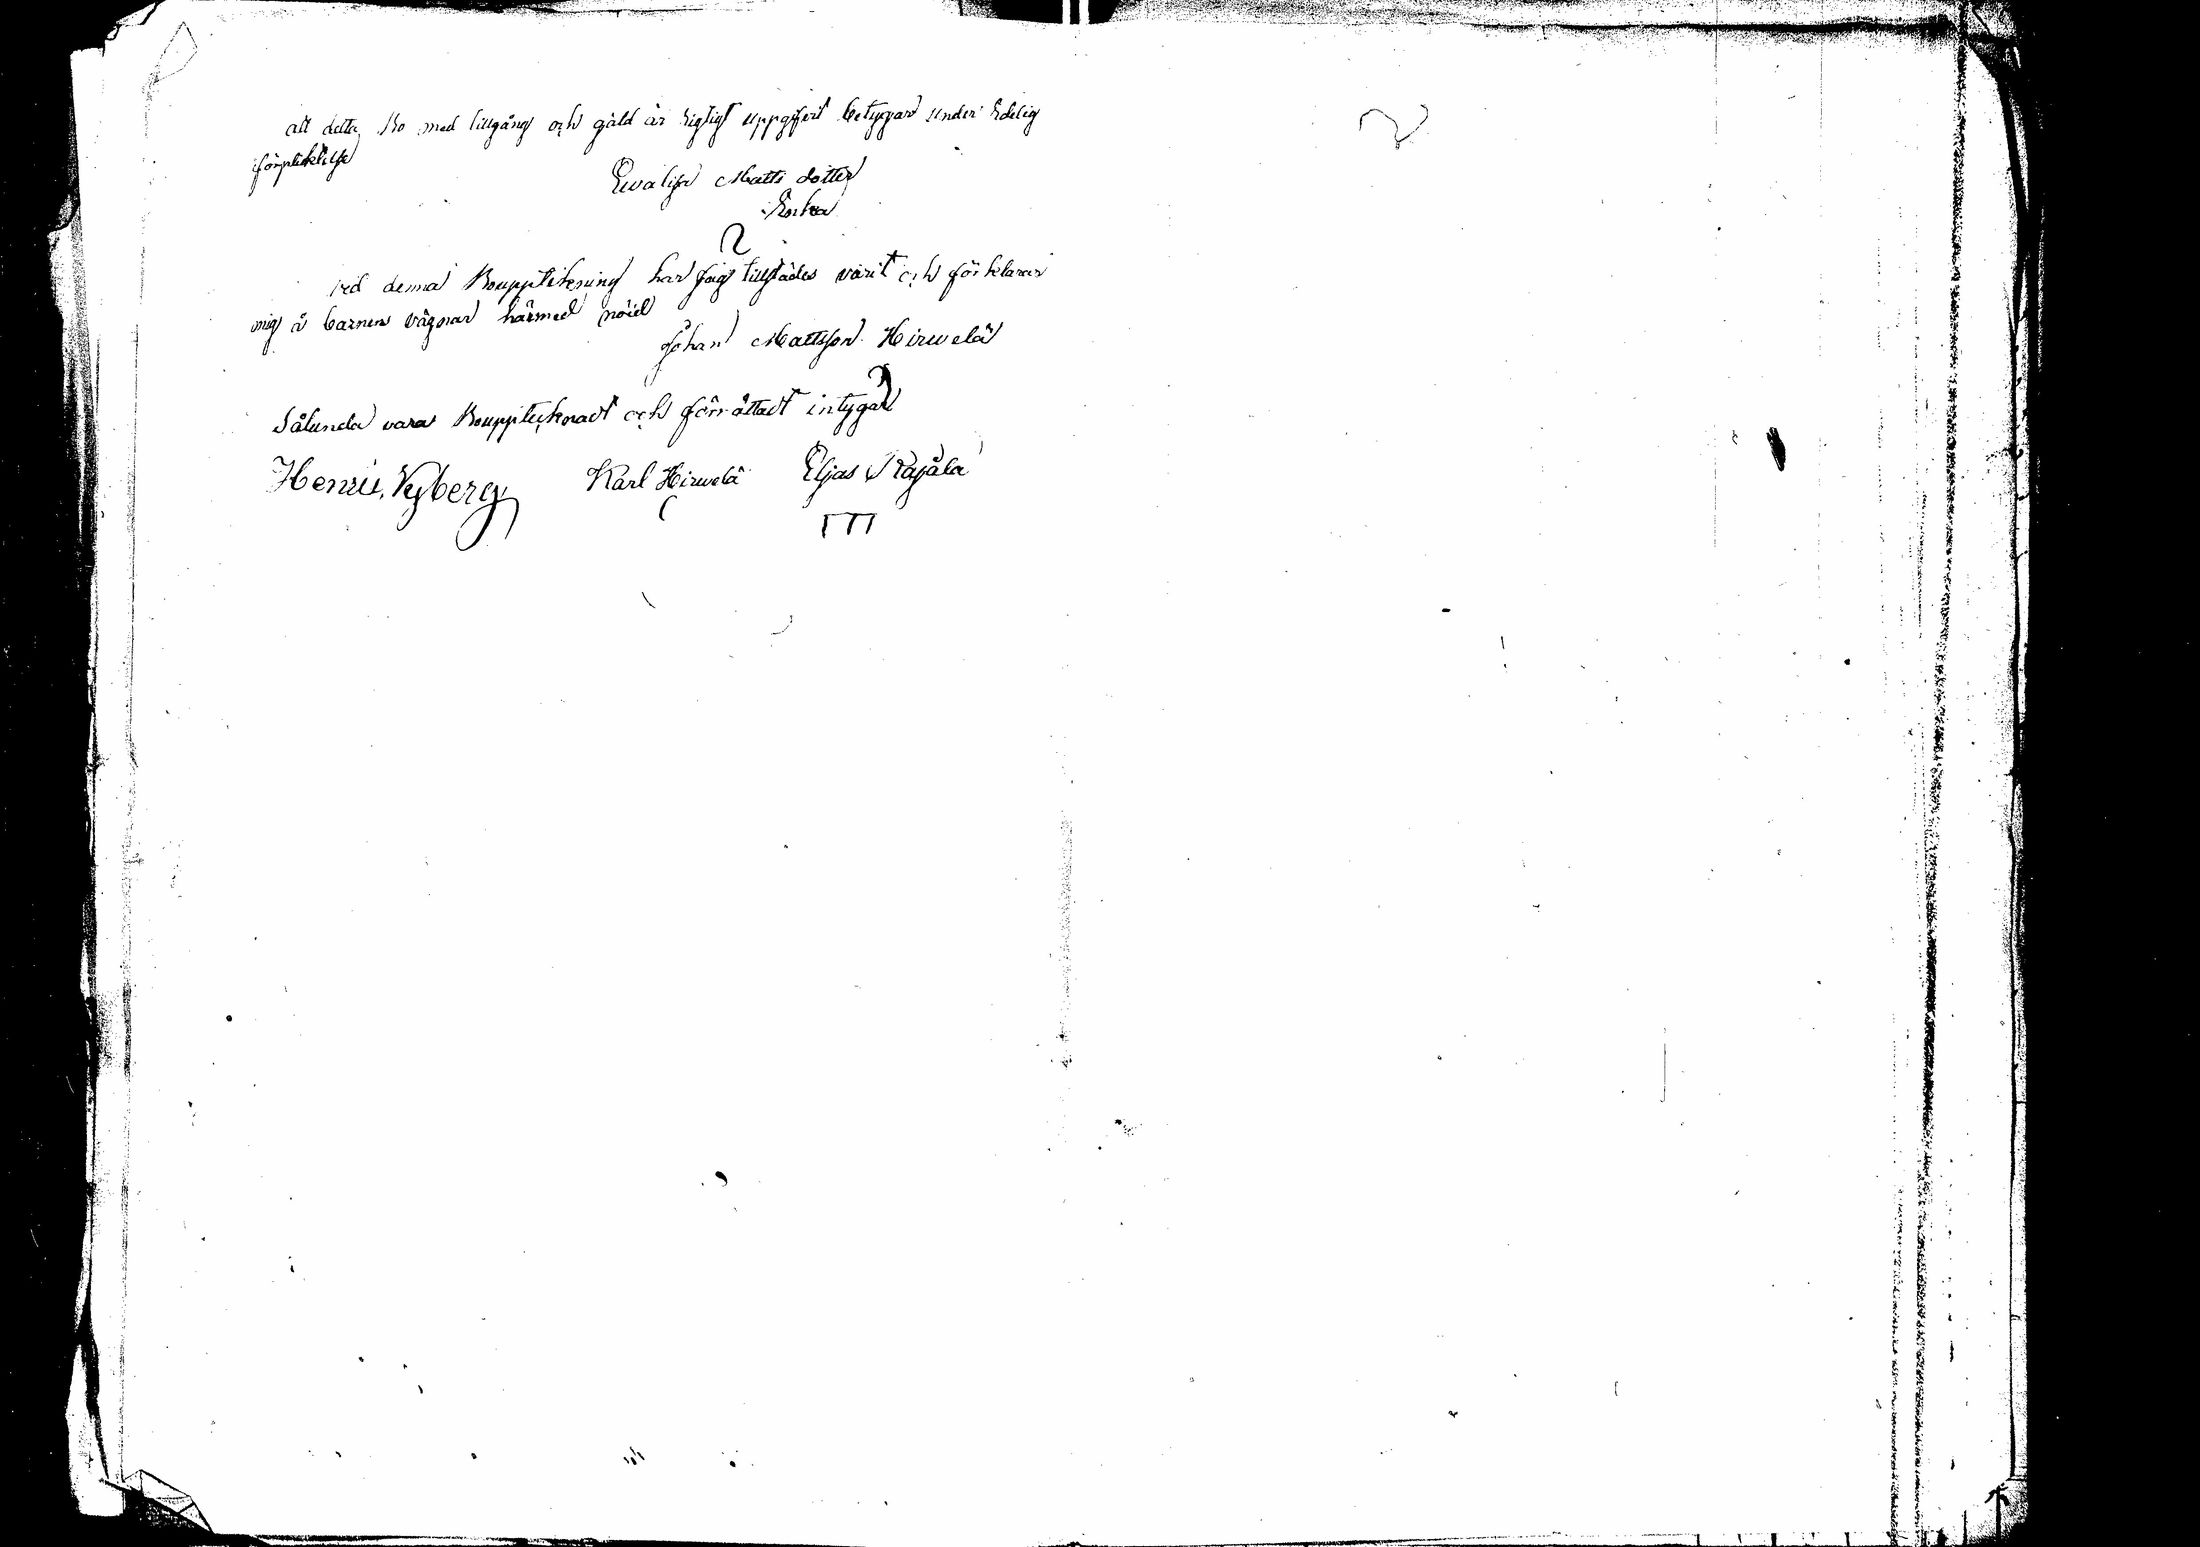 att detta Bo med tillgång och gäld är rigtigt uppgifvit betygar under Edelig
förpliktelse
Eva Lisa Matts dotter
Enka
vid denna Boupptekning har jag tillstädes varit och förklarar
mig å barnens vägnar härmed nöid
Johan Mattsson Hirvelä
Sålunda vara Boupptecknadt och förrättadt intygar
Henric Nyberg Karl Hirvelä Eljas Rajala